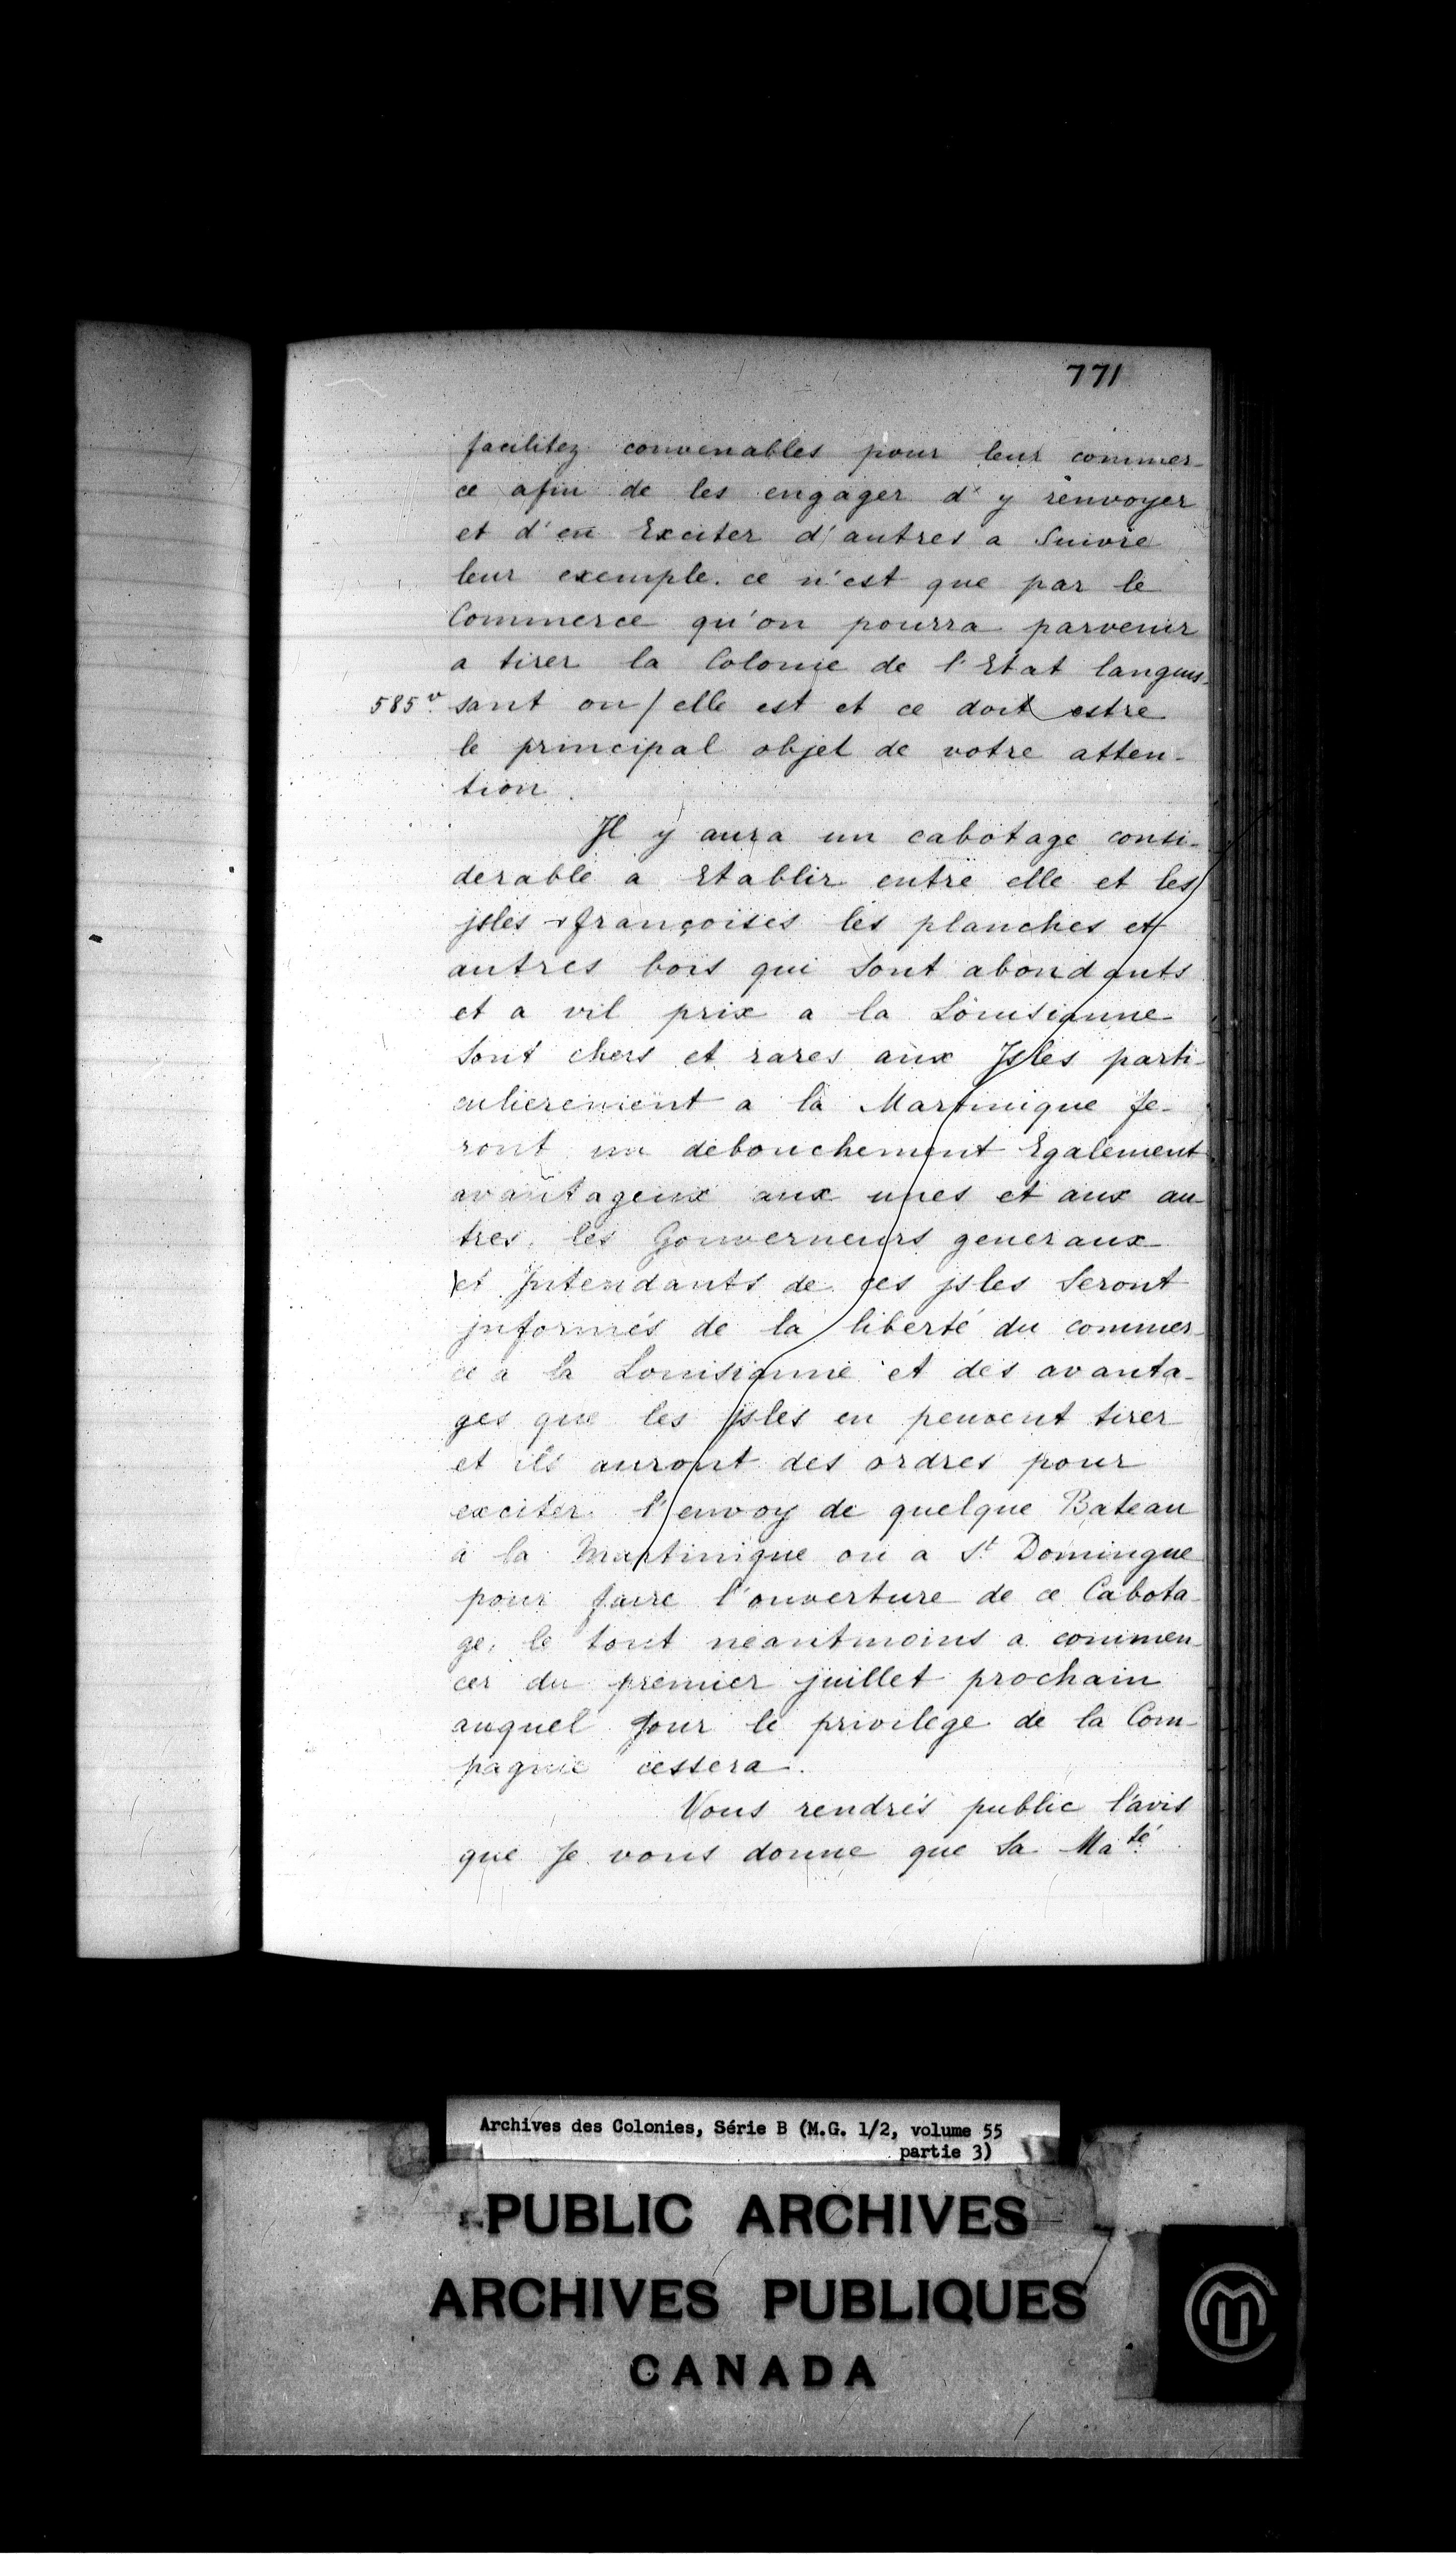 771
facilitez convenables pour leur commer-
ce afin de les engager d'y renvoyer
et d'en Exciter d'autres a Suivre
leur exemple. ce n'est que par le
Commerce qu'on pourra parvenir
a tirer la Colonie de l'Etat languis-
585 v. sant ou / elle est et ce doit estre
le principal objet de votre atten-
tion.
Il y aura un cabotage consi-
derable a Etablir entre elle et les
jsles françoises les planches et
autres bois qui Sont abondants
et a vil prix a la Louisianne
Sont chers et rares aux Jsles parti-
culierement a la Martinique fe-
ront un debouchement Egalement
avantageux aux unes et aux au-
tres, les Gouverneurs generaux
et Jntendants de ces jsles Seront
jnformés de la liberté du commer-
ce a la Louisianne et des avanta-
ges que les jsles en peuvent tirer
et ils auront des ordres pour
exciter l'envoy de quelque Bateau
à la Martinique ou a St Domingue
pour faire l'ouverture de ce Cabota-
ge, le tout neantmoins a commen-
cer du premier juillet prochain
auquel Jour le privilege de la Com-
pagnie cessera.
Vous rendrés public l'avis
que Je vous donne que Sa Maté.
Archives des Colonies, Série B (M.G. 1/2, volume 55
partie 3)
PUBLIC ARCHIVES
ARCHIVES PUBLIQUES
CANADA